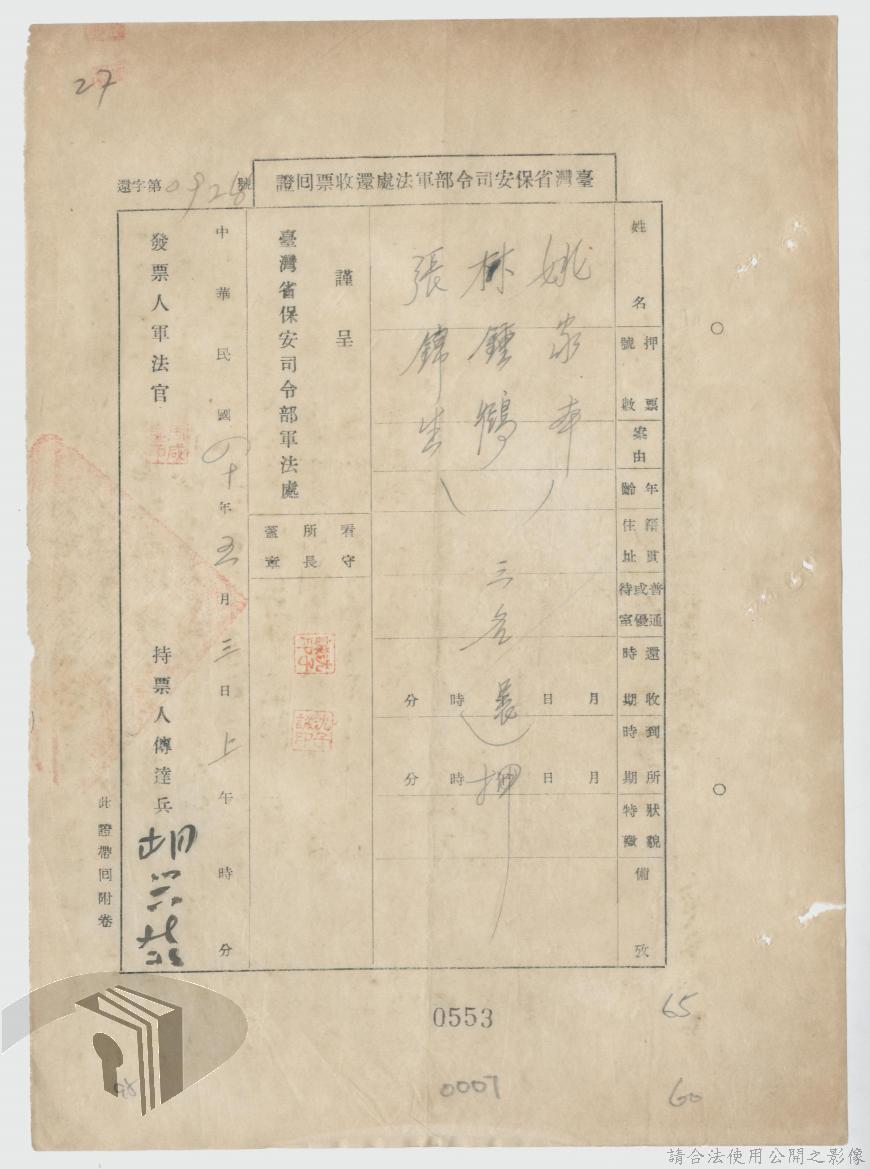 27
臺灣省保安司令部軍法處還收票回證
還字第0928號
姓名
押票號數
案由
年齡
籍貫住址
普通或優待室
還收時期
到所時期
狀貌特徵
備攷
姚家本
林鍾鶴
張錦生
三名還押
月日時分
月日時分
謹呈
臺灣省保安司令部軍法處
看守所長蓋章
中華民國四十年五月三日上午時分
發票人軍法官
持票人傳達兵
此證帶回附卷
0553
65
0007
60
請合法使用公開之影像